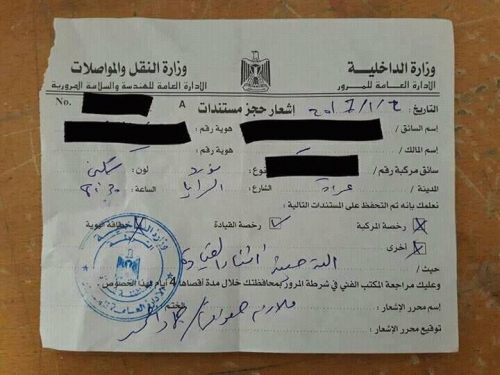 وزارة الداخلية
الادارة العامة للمرور
وزارة النقل والمواصلات
الادارة العامة للهندسة والسلامة المرورية
No.
A
اشعار حجز مستندات
التاريخ :
إسم السائق :
هوية رقم :
إسم المالك :
هوية رقم :
سائق مركبة رقم :
نوع :
فورد
لون :
سكني
المدينة
غزة
الشارع
الساعة :
8:30
نعلمك بانه تم التحفظ على المستندات التالية :
رخصة المركبة
رخصة القيادة
بطاقة هوية
أخرى
حيث /
وعليك مراجعة المكتب الفني في شرطة المرور بمحافظتك خلال مدة أقصاها 4 أيام لهذا الخصوص
إسم محرر الإشعار :
الختم
توقيع محرر الإشعار :